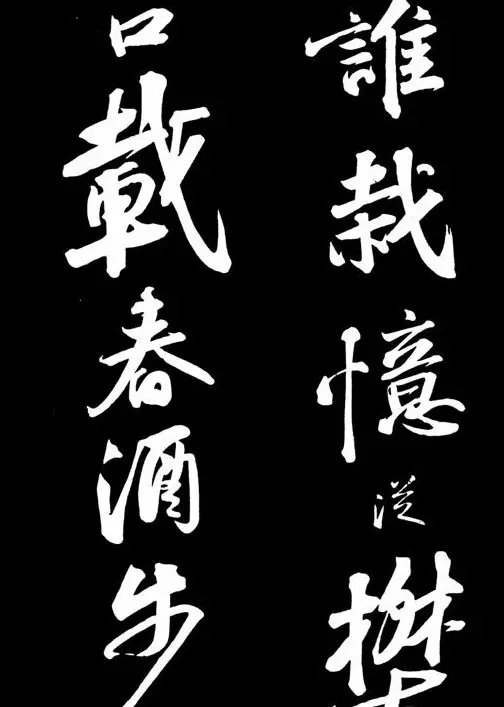 誰栽憶從樊
口載春酒步